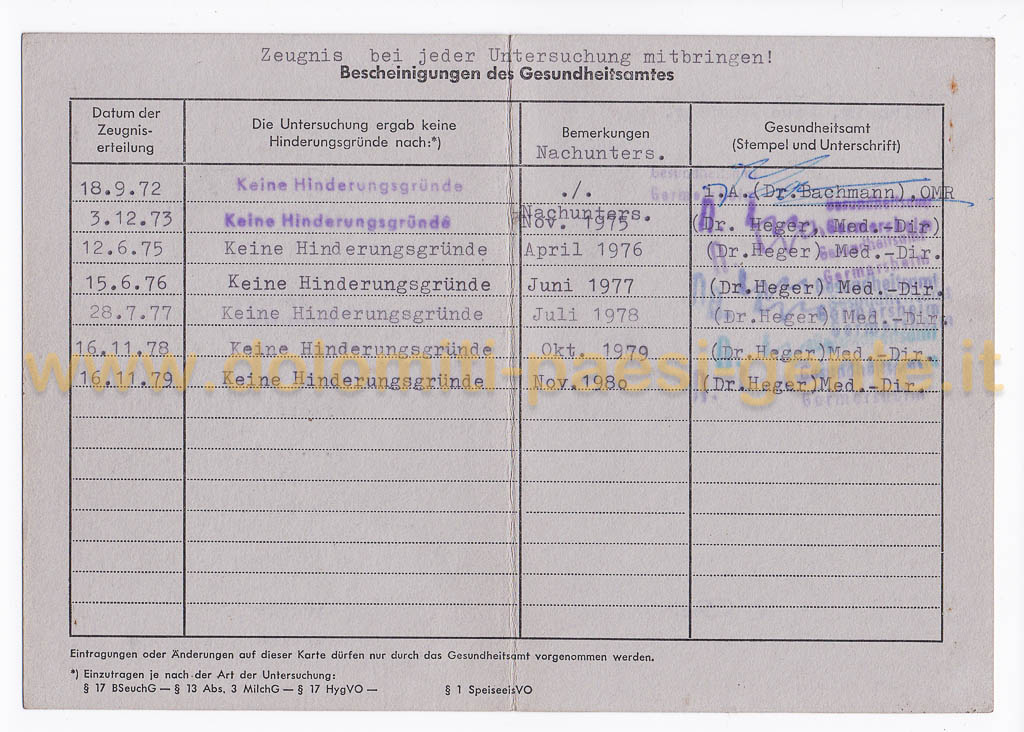 Zeugnis bei jeder Untersuchung mitbringen!
Bescheinigungen des Gesundheitsamtes
Datum der Zeugnis-erteilung
Die Untersuchung ergab keine Hinderungsgründe nach:*)
Bemerkungen Nachunters.
Gesundheitsamt (Stempel und Unterschrift)
18.9.72 Keine Hinderungsgründe ./. I.A.(Dr.Bachmann),OMR
Nachunters.
3.12.73 Keine Hinderungsgründe Nov. 1975 (Dr. Heger) Med.-Dir)
12.6.75 Keine Hinderungsgründe April 1976 (Dr.Heger) Med.-Dir.
15.6.76 Keine Hinderungsgründe Juni 1977 (Dr.Heger) Med.-Dir.
28.7.77 Keine Hinderungsgründe Juli 1978 (Dr.Heger) Med.-Dir.
16.11.78 Keine Hinderungsgründe Okt. 1979 (Dr.Heger)Med.-Dir.
16.11.79 Keine Hinderungsgründe Nov.198o (Dr.Heger)Med.-Dir.
Germersheim
www.dolomiti-paesi-gente.it
Eintragungen oder Änderungen auf dieser Karte dürfen nur durch das Gesundheitsamt vorgenommen werden.
*) Einzutragen je nach der Art der Untersuchung:
§ 17 BSeuchG — § 13 Abs. 3 MilchG — § 17 HygVO — § 1 SpeiseeisVO